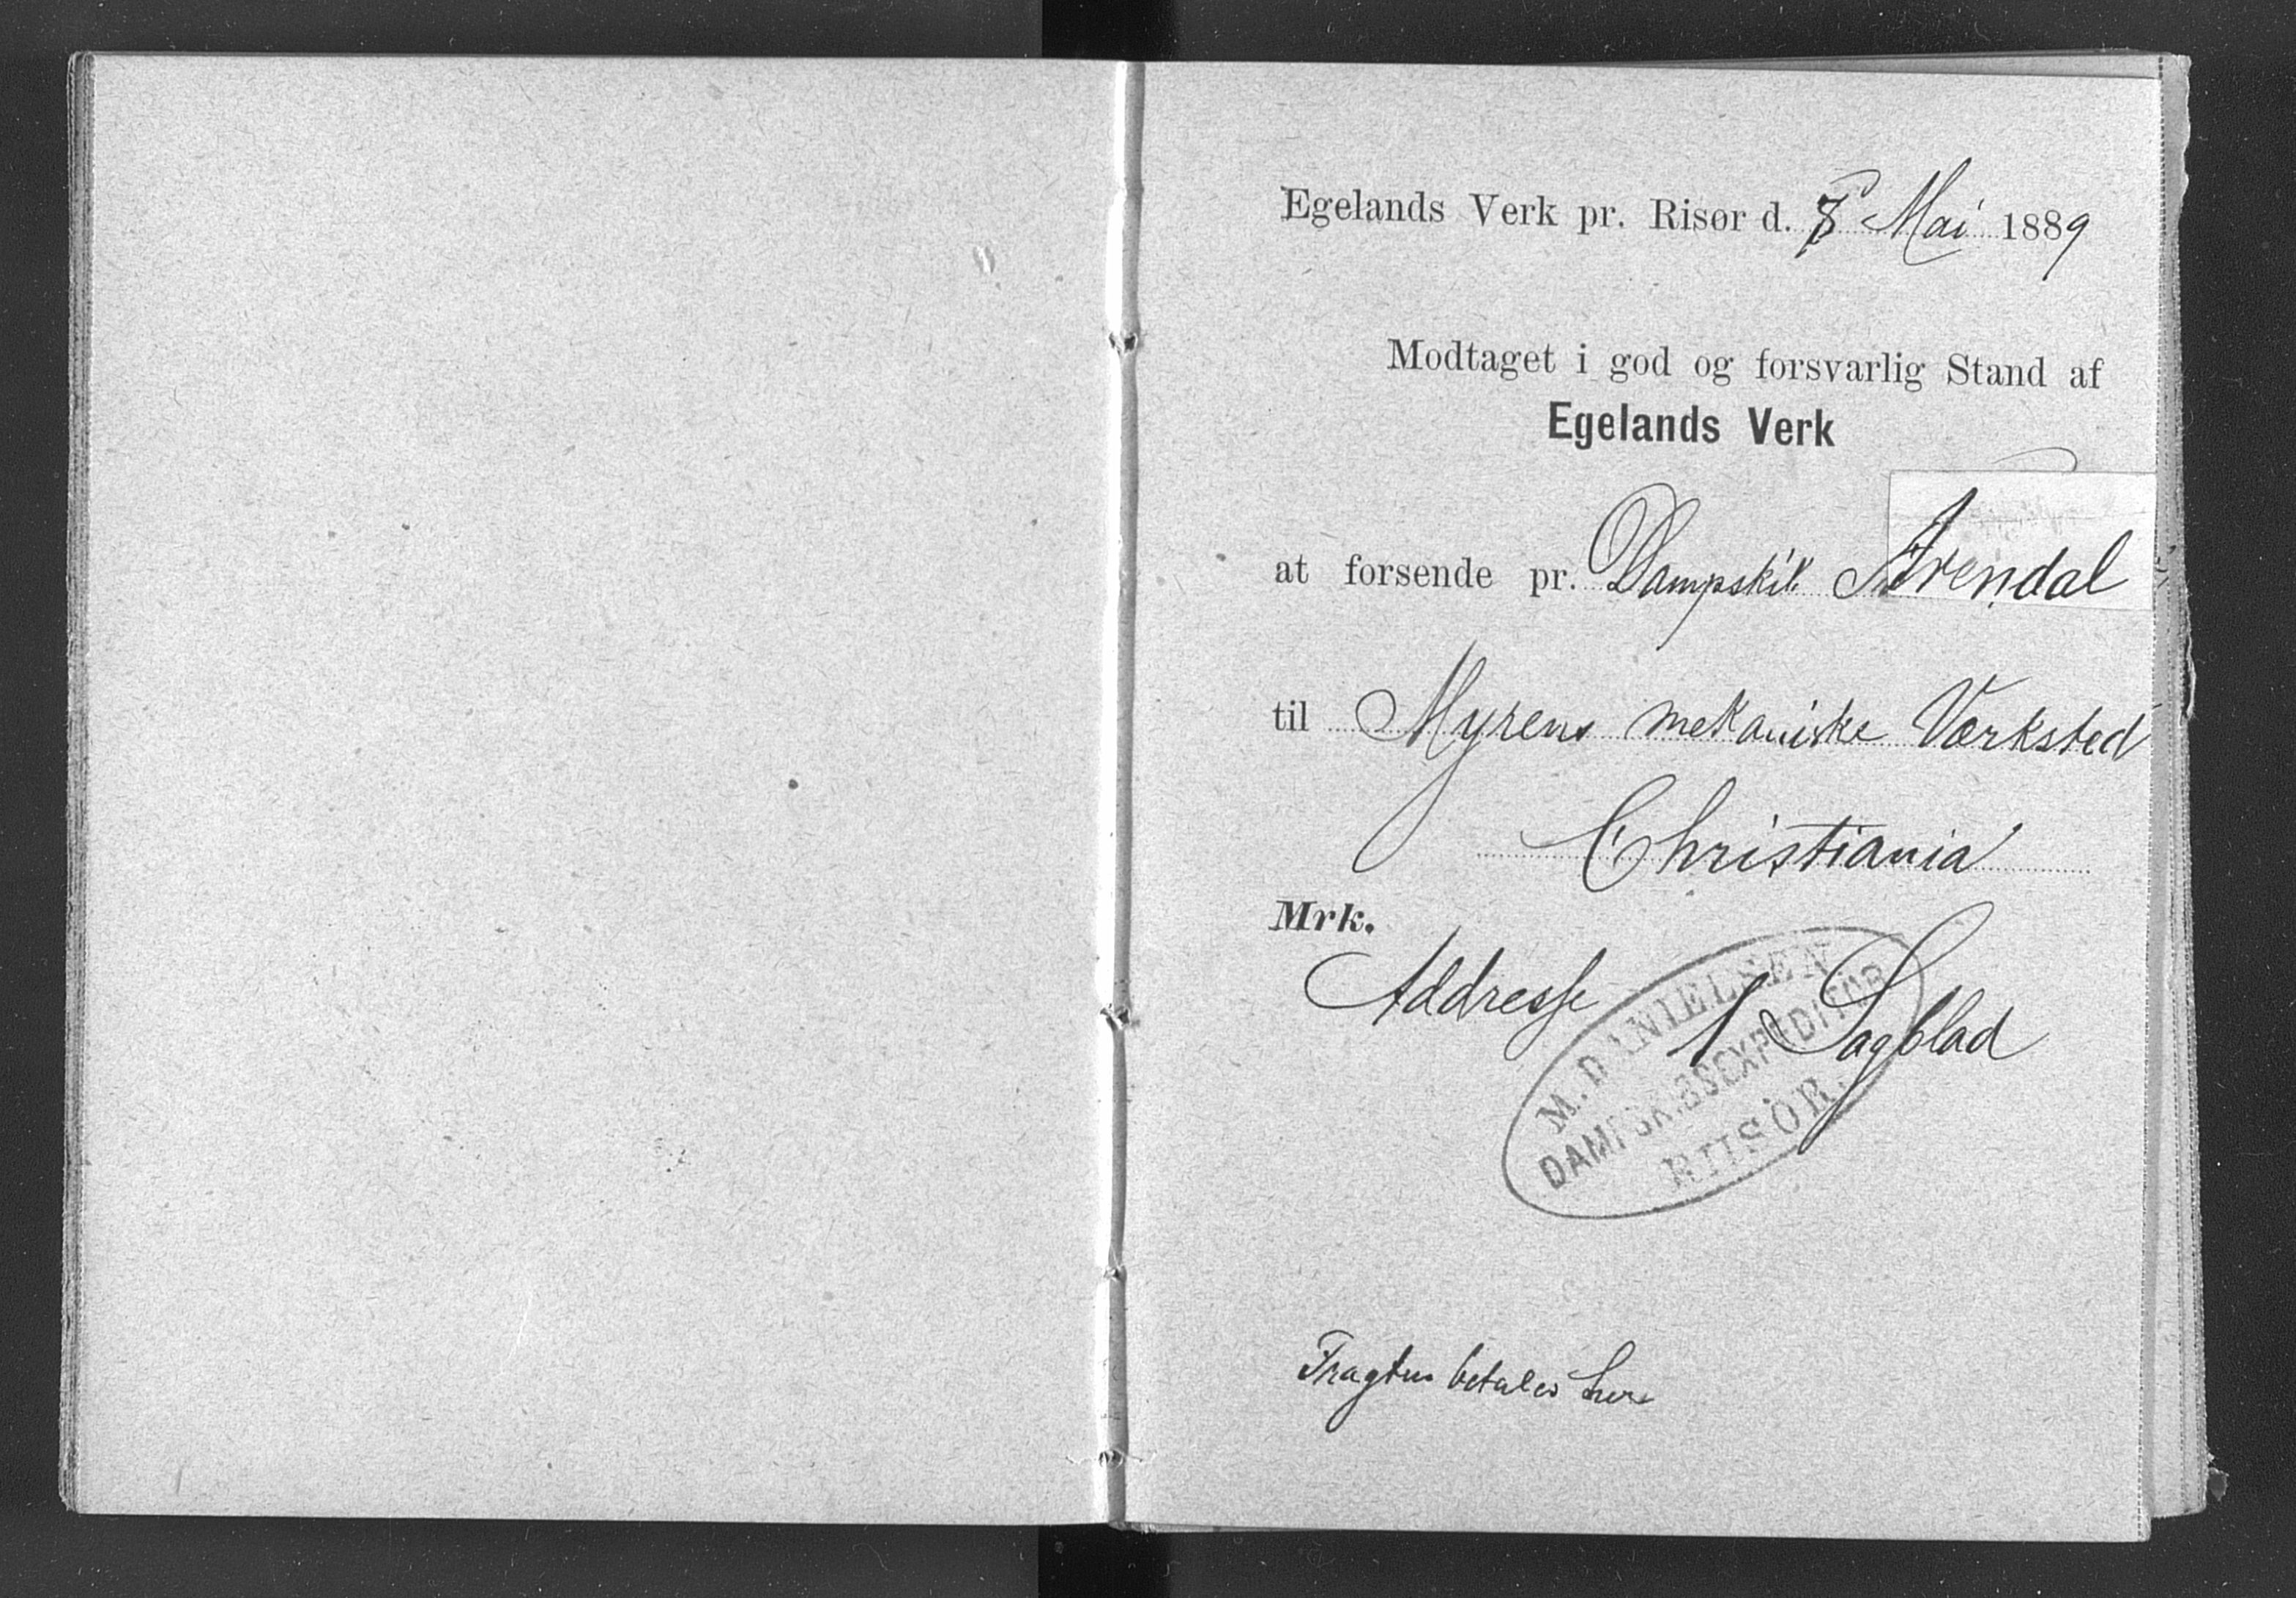 Egelands Verk pr. Risør d. 8 Mai 1889
Modtaget i god og forsvarlig Stand af
Egelands Verk
at forsende pr. Dampskib Arendal
til Myrens mekaniske Værksted
Christiania
Mrk.
Addresse 1 Sagblad
M. DANIELSEN
DAMPSKIBSEXPEDITØR
RIISÖR.
Fragten betales her